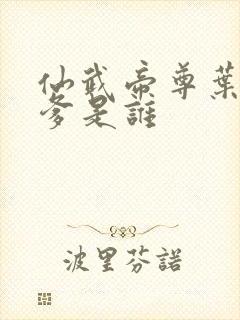 仙武帝尊葉
爹是誰
波里芬諾